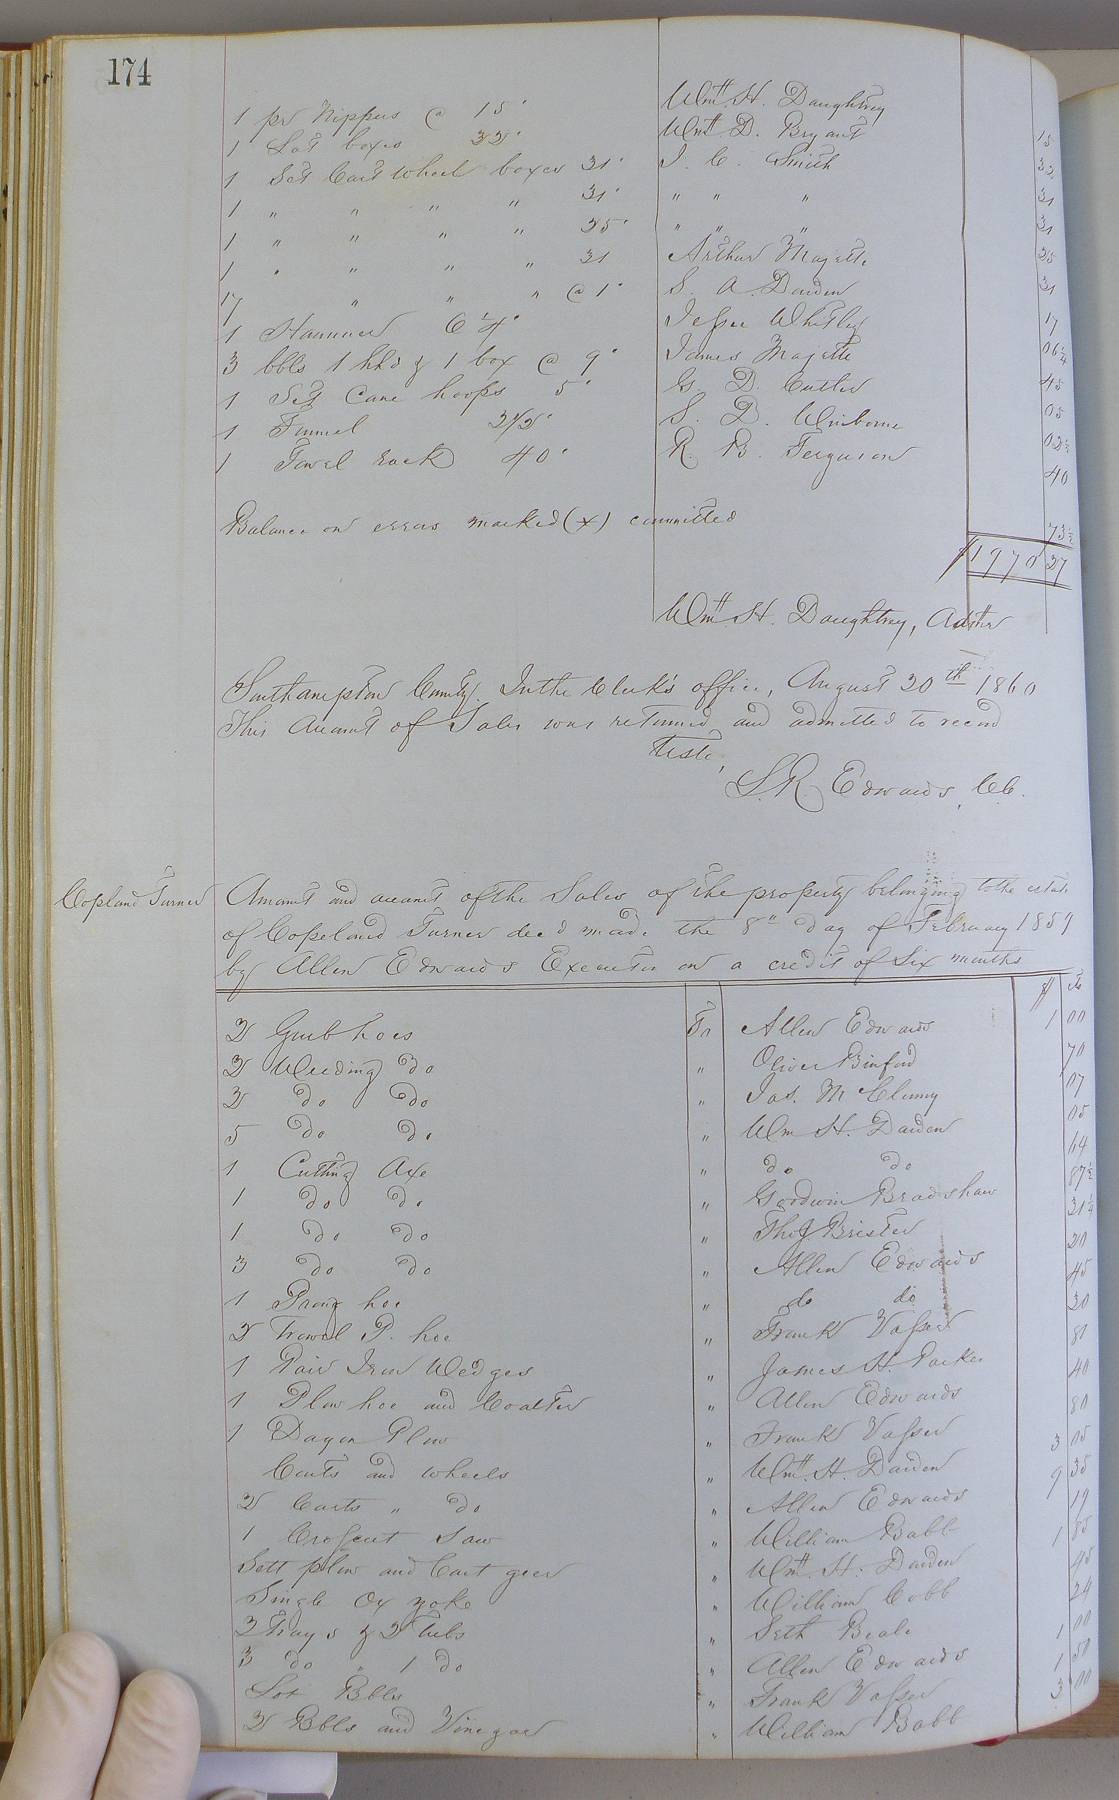 174
1 pr Nippers @ 15c Wm H. Daughtrey 15
1 Lot boxes 32c Wm D. Bryant 32
1 Set Cart wheel boxes 31c J. C. Smith 31
1 " " " " 31c " " " 31
1 " " " " 25c " " " 25
1 " " " " 31 Arthur Magette 31
17 " " " @ 1c S. A. Darden 17
1 Hammer 6¼c Jesse Whitley 06¼
3 bbls 1 hhd & 1 box @ 9c James Magette 45
1 Set Cane hoops 5c G. D. Cutler 05
1 Funnel 2½c S. D. Winborne 02½
1 Towel rack 40c R. B. Ferguson 40
Balance on errors marked (x) committed 73½
$1970 27
Wm H. Daughtrey, Admtr
Southampton County. In the Clerk's office, August 20th 1860
This Account of Sales was returned and admitted to record
Teste,
L. R. Edwards, CC.
Copland Turner
Amount and account of the Sales of the property belonging to the estate
of Copeland Turner decd made the 8th day of February 1859
by Allen Edwards Executor on a credit of Six months
$ cts
2 Grub hoes To Allen Edwards 1 00
2 Weeding do " Oliver Binford 70
2 do do " Jas. M Clenny 07
5 do do " Wm H. Darden 05
1 Cutting Axe " do do 64
1 do do " Goodwin Bradshaw 87½
1 do do " Thos J. Brister 31¼
3 do do " Allen Edwards 20
1 Prong hoe " do do 45
2 Trowel P. hoe " Frank Vasser 20
1 Pair Iron Wedges " James H. Parker 81
1 Plow hoe and Coalter " Allen Edwards 40
1 Dagon Plow " Frank Vasser 80
Carts and wheels " Wm. H. Darden 3 05
2 Carts " do " Allen Edwards 9 35
1 Crosscut Saw " William Babb 19
Sett plow and Cart geer " Wm. H. Darden 1 85
Single Ox yoke " William Cobb 45
2 Trays & 2 Tubs " Seth Beale 24
3 do " 1 do " Allen Edwards 1 00
Lot Bbls " Frank Vasser 1 50
2 Bbls and Vinegar " William Babb 3 00